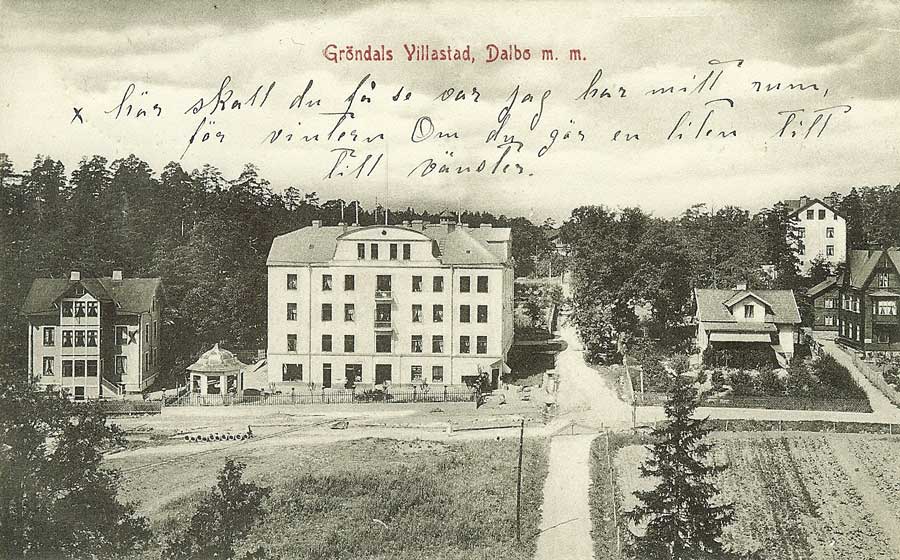 Gröndals Villastad, Dalbo m. m.
x här skall du få se var jag har mitt rum,
för vintern Om du går en liten till
till vänster.